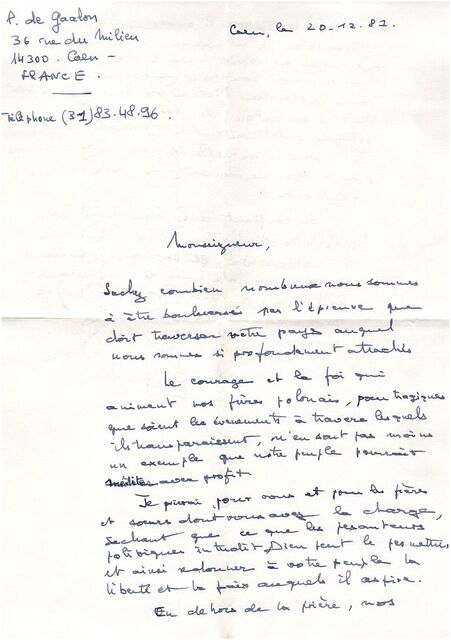 P. de Gaalon
36 rue du Milieu
14300 . Caen -
FRANCE .
Téléphone (31) 83.48.96 .
Caen, le 20-12.81.
Monseigneur,
Sachez combien nombreux nous sommes
à être bouleversés par l'épreuve que
doit traverser votre pays auquel
nous sommes si profondément attachés
Le courage et la foi qui
animent vos frères polonais, pour tragiques
que soient les évènements à travers lesquels
ils transparaissent, n'en sont pas moins
un exemple que notre peuple pourrait
méditer avec profit.
Je prierai, pour vous et pour les frères
et soeurs dont vous avez la charge,
sachant que ce que les pesanteurs
politiques interdit, Dieu peut le permettre
et ainsi redonner à votre peuple la
liberté et la paix auxquels il aspire.
En dehors de la prière, nos